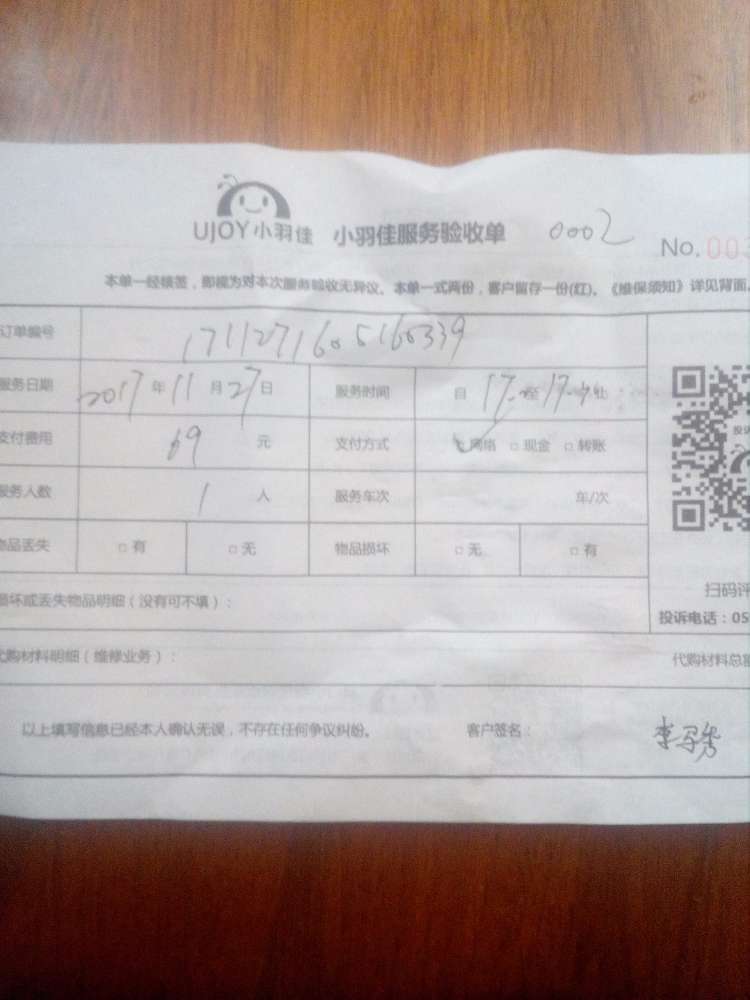 UJOY小羽佳 小羽佳服务验收单 0002 No.003
本单一经接签，即视为对本次服务验收无异议。本单一式两份，客户留存一份(红)。《维保须知》详见背面
订单编号 1711271605160339
服务日期 2017年11月27日 服务时间 自 17 至 17
支付费用 69 元 支付方式 网络 □ 现金 □ 转账
服务人数 1 人 服务车次 车/次
物品丢失 □ 有 □ 无 物品损坏 □ 无 □ 有
损坏或丢失物品明细（没有可不填）：
扫码评
投诉电话：05
代购材料明细（维修业务）： 代购材料总
以上填写信息已经本人确认无误，不存在任何争议纠纷。 客户签名： 李